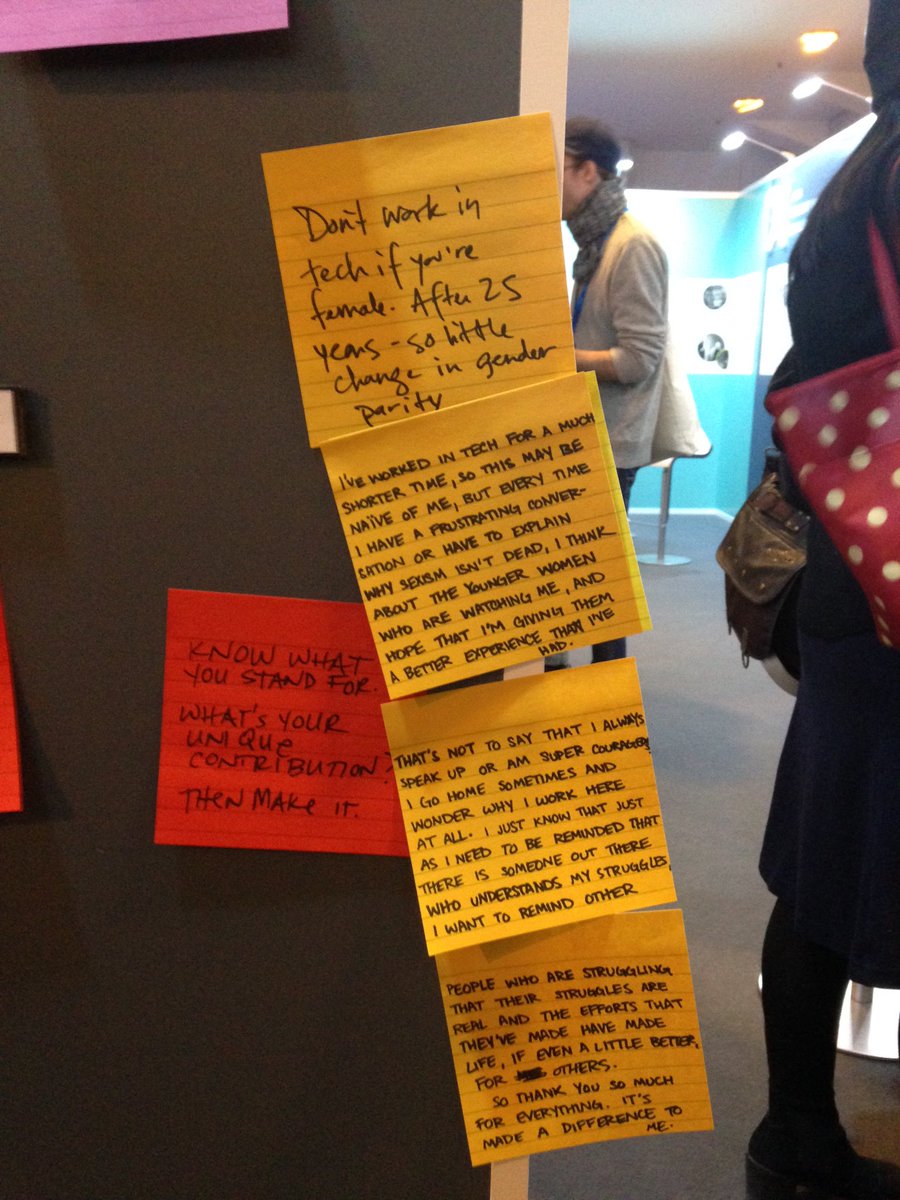 Don't work in
tech if you're
female. After 25
years - so little
change in gender
parity
I'VE WORKED IN TECH FOR A MUCH
SHORTER TIME, SO THIS MAY BE
NAÏVE OF ME, BUT EVERY TIME
I HAVE A FRUSTRATING CONVER-
SATION OR HAVE TO EXPLAIN
WHY SEXISM ISN'T DEAD, I THINK
ABOUT THE YOUNGER WOMEN
WHO ARE WATCHING ME, AND
HOPE THAT I'M GIVING THEM
A BETTER EXPERIENCE THAN I'VE
HAD.
THAT'S NOT TO SAY THAT I ALWAYS
SPEAK UP OR AM SUPER COURAGEOUS
I GO HOME SOMETIMES AND
WONDER WHY I WORK HERE
AT ALL. I JUST KNOW THAT JUST
AS I NEED TO BE REMINDED THAT
THERE IS SOMEONE OUT THERE
WHO UNDERSTANDS MY STRUGGLES
I WANT TO REMIND OTHER
PEOPLE WHO ARE STRUGGLING
THAT THEIR STRUGGLES ARE
REAL AND THE EFFORTS THAT
THEY'VE MADE HAVE MADE
LIFE, IF EVEN A LITTLE BETTER,
FOR OTHERS.
SO THANK YOU SO MUCH
FOR EVERYTHING. IT'S
MADE A DIFFERENCE TO
ME.
KNOW WHAT
YOU STAND FOR.
WHAT'S YOUR
UNIQUE
CONTRIBUTION?
THEN MAKE IT.